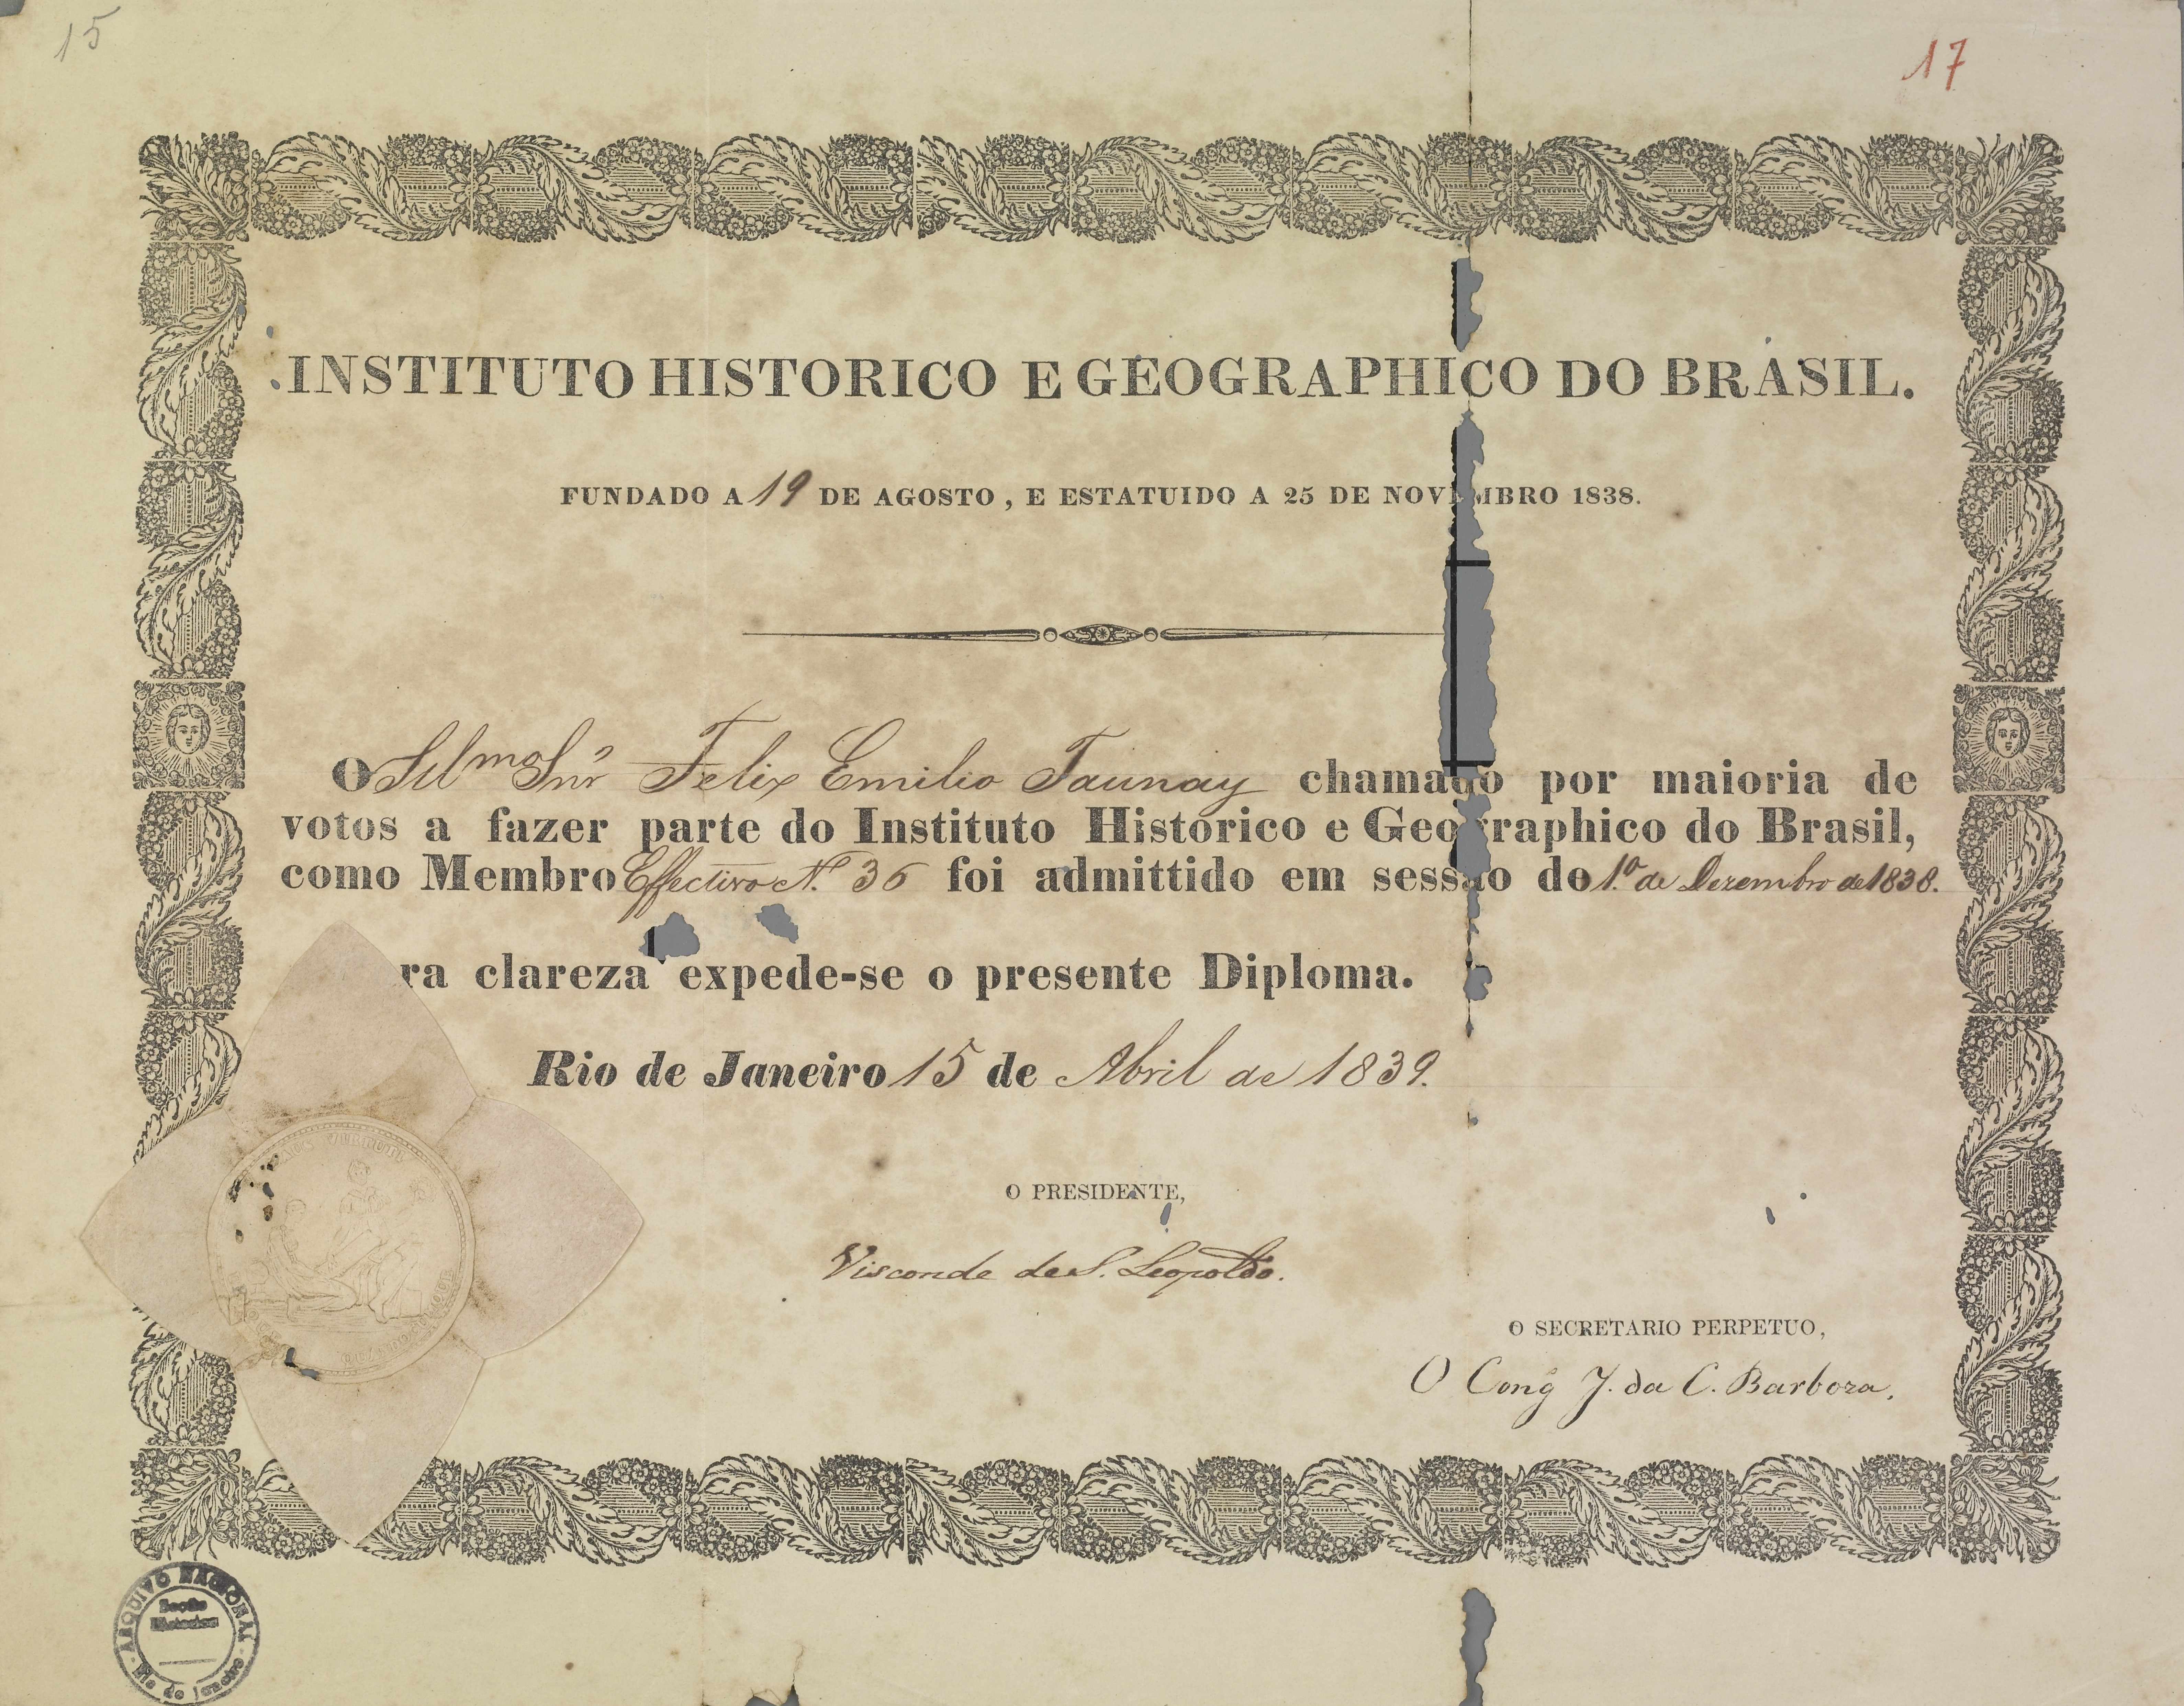 15
17
INSTITUTO HISTORICO E GEOGRAPHICO DO BRASIL.
FUNDADO A 19 DE AGOSTO, E ESTATUIDO A 25 DE NOVEMBRO 1838.
O Illmo Snr Felix Emilio Taunay chamado por maioria de
votos a fazer parte do Instituto Historico e Geographico do Brasil,
como Membro Effectivo N.º 36 foi admittido em sessão do 1.º de Dezembro de 1838.
ra clareza expede-se o presente Diploma.
Rio de Janeiro 15 de Abril de 1839.
O PRESIDENTE,
Visconde de S. Leopoldo.
O SECRETARIO PERPETUO,
O Coneg J. da C. Barboza.
ARQUIVO NACIONAL
Secão
Historica
Rio de Janeiro